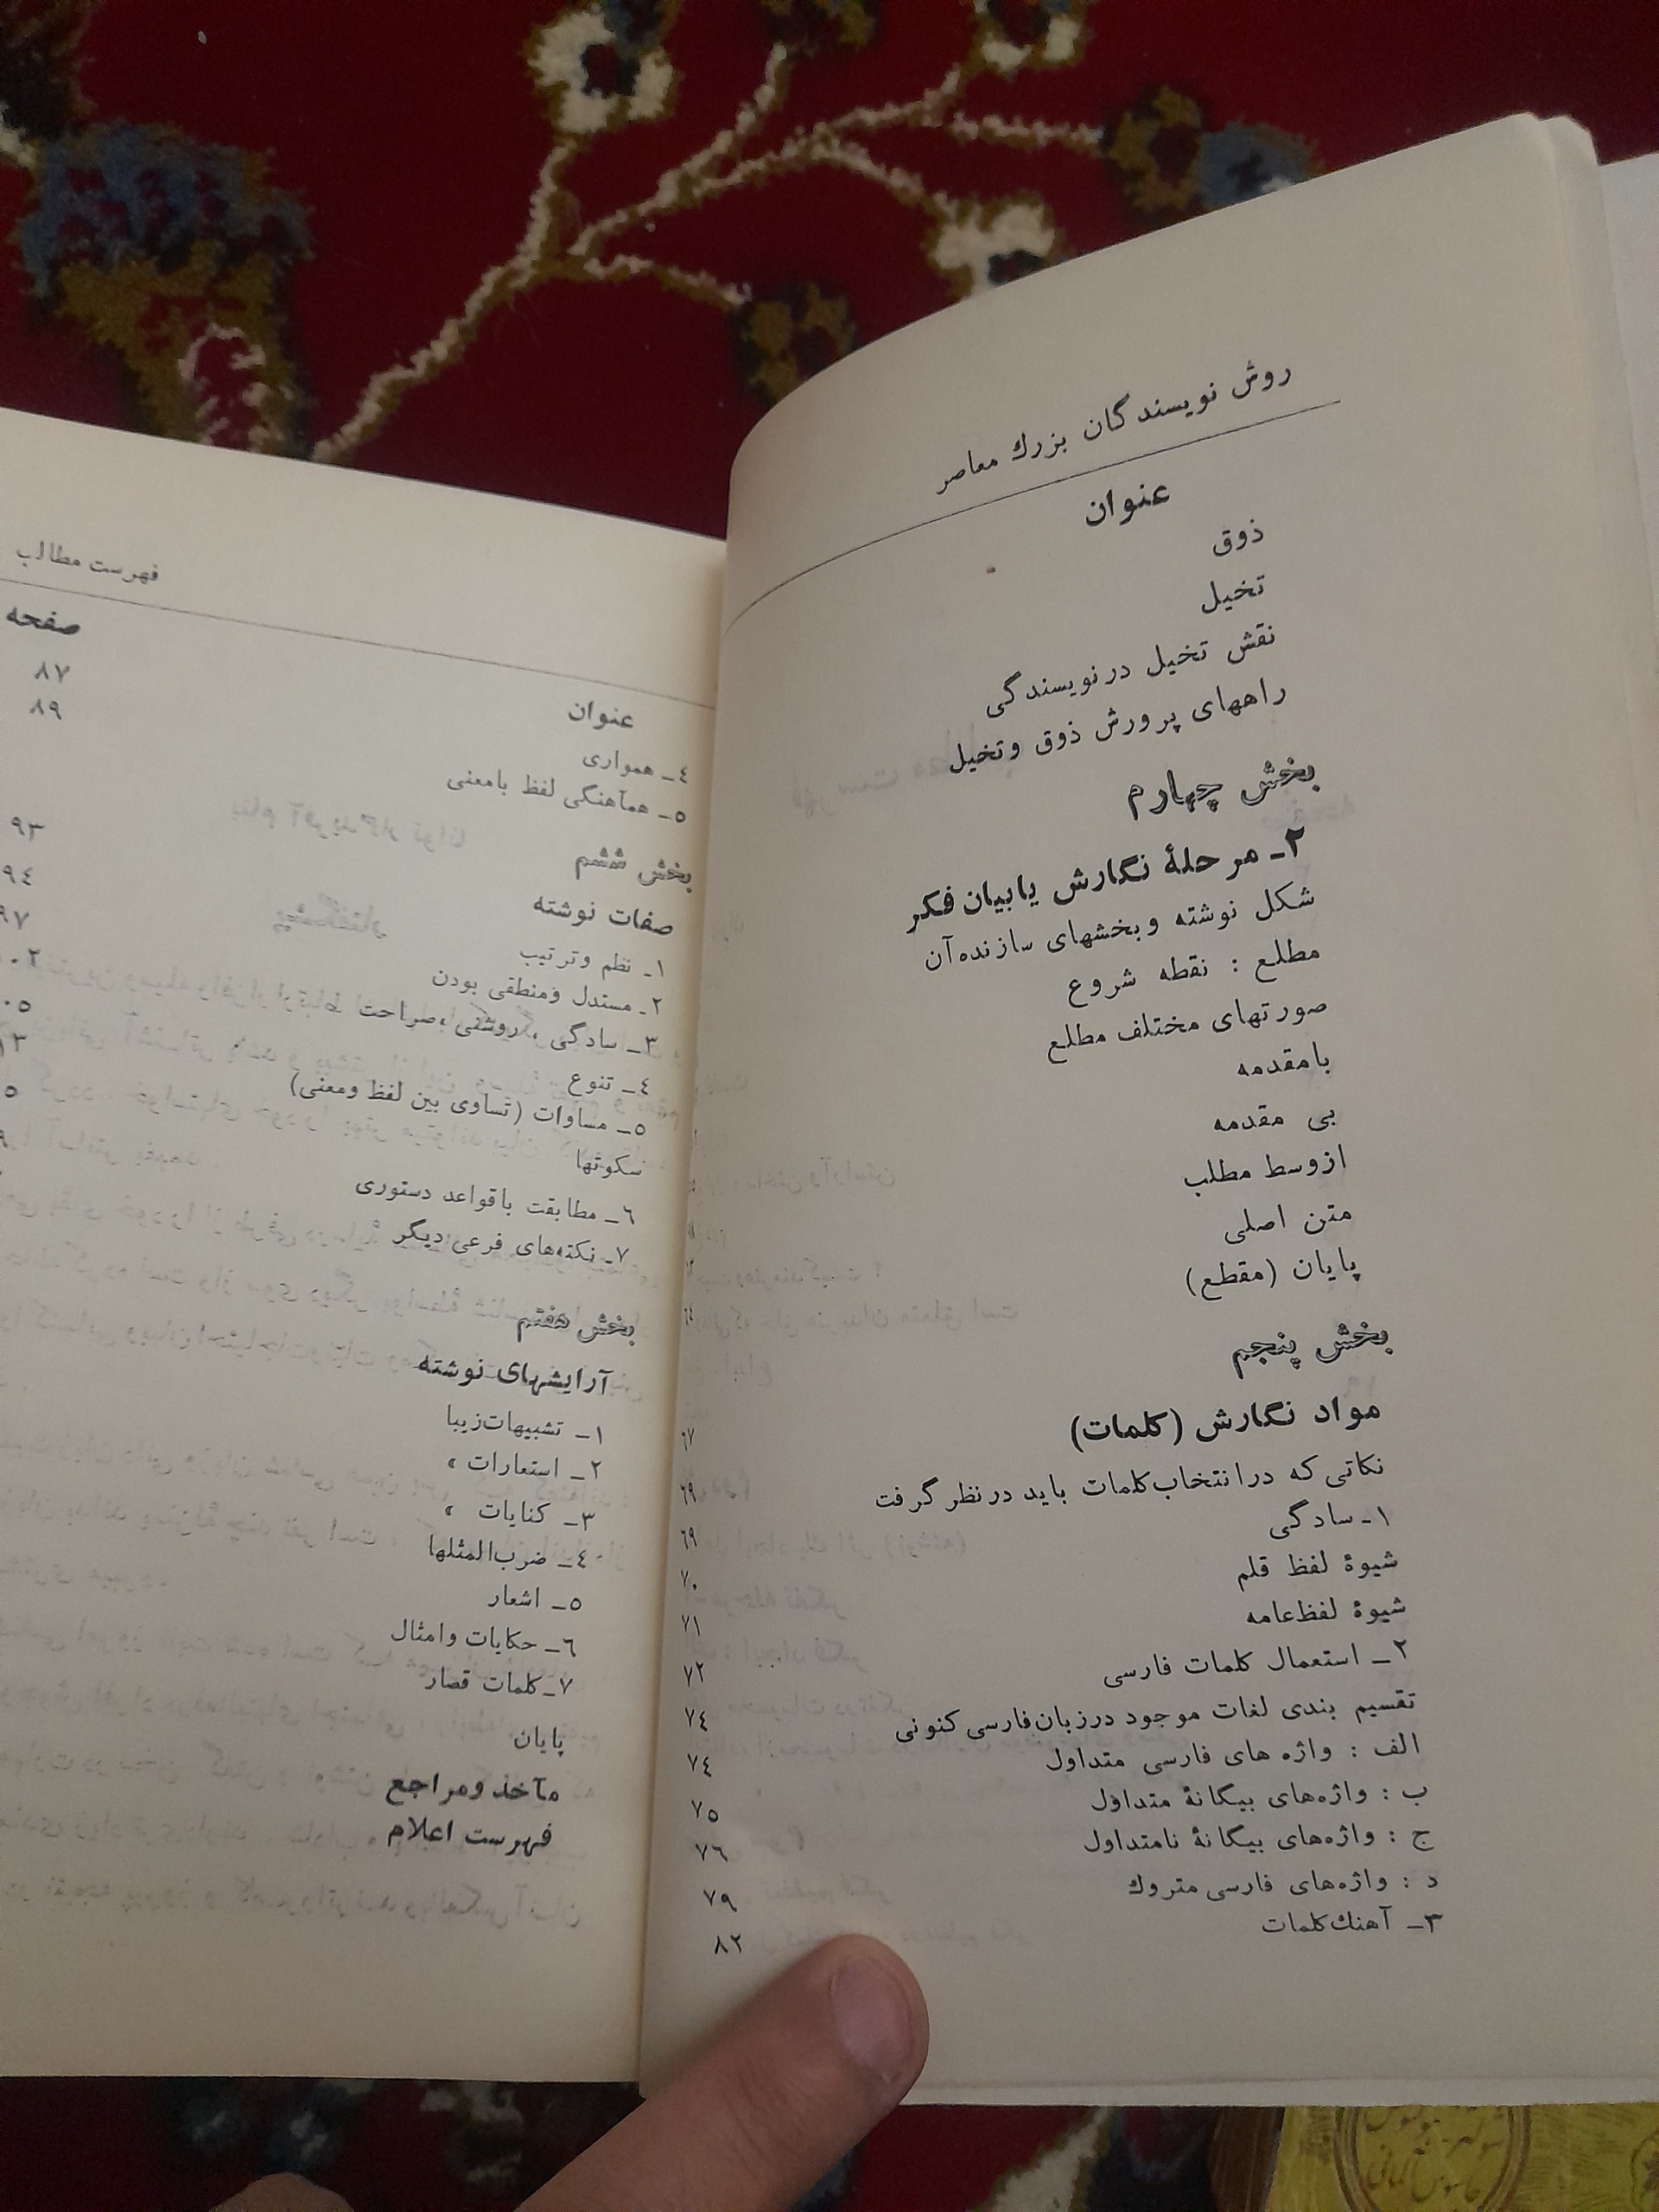 روش نویسندگان بزرك معاصر
عنوان
ذوق
تخیل
نقش تخیل درنویسندگی
راههای پرورش ذوق وتخیل
بخش چهارم
۲ـ مرحلهٔ نگارش یابیان فکر
شکل نوشته وبخشهای سازنده آن
مطلع : نقطه شروع
صورتهای مختلف مطلع
بامقدمه
بی مقدمه
ازوسط مطلب
متن اصلی
پایان (مقطع)
بخش پنجم
مواد نگارش (کلمات)
۶۷
نکاتی که درانتخاب کلمات باید درنظر گرفت
۶۹
۱ـ سادگی
۶۹
شیوهٔ لفظ قلم
۷۰
شیوهٔ لفظ عامه
۷۱
۲ـ استعمال کلمات فارسی
۷۲
تقسیم بندی لغات موجود درزبان فارسی کنونی
۷٤
الف : واژه های فارسی متداول
۷٤
ب : واژه‌های بیگانهٔ متداول
۷۵
ج : واژه‌های بیگانهٔ نامتداول
۷۶
د : واژه‌های فارسی متروك
۷۹
۳ـ آهنك کلمات
۸۲
فهرست مطالب
عنوان
صفحه
٤ـ همواری
۸۷
۵ـ هم‌آهنگی لفظ بامعنی
۸۹
بخش ششم
صفات نوشته
۹۳
۱ـ نظم وترتیب
۹٤
۲ـ مستدل ومنطقی بودن
۹۷
۳ـ سادگی ، روشنی ، صراحت
٤ـ تنوع
۵ـ مساوات (تساوی بین لفظ ومعنی)
سکوتها
۶ـ مطابقت باقواعد دستوری
۷ـ نکته‌های فرعی دیگر
بخش هفتم
آرایشهای نوشته
۱ـ تشبیهات زیبا
۲ـ استعارات »
۳ـ کنایات »
٤ـ ضرب‌المثلها
۵ـ اشعار
۶ـ حکایات وامثال
۷ـ کلمات قصار
پایان
مآخذ ومراجع
فهرست اعلام